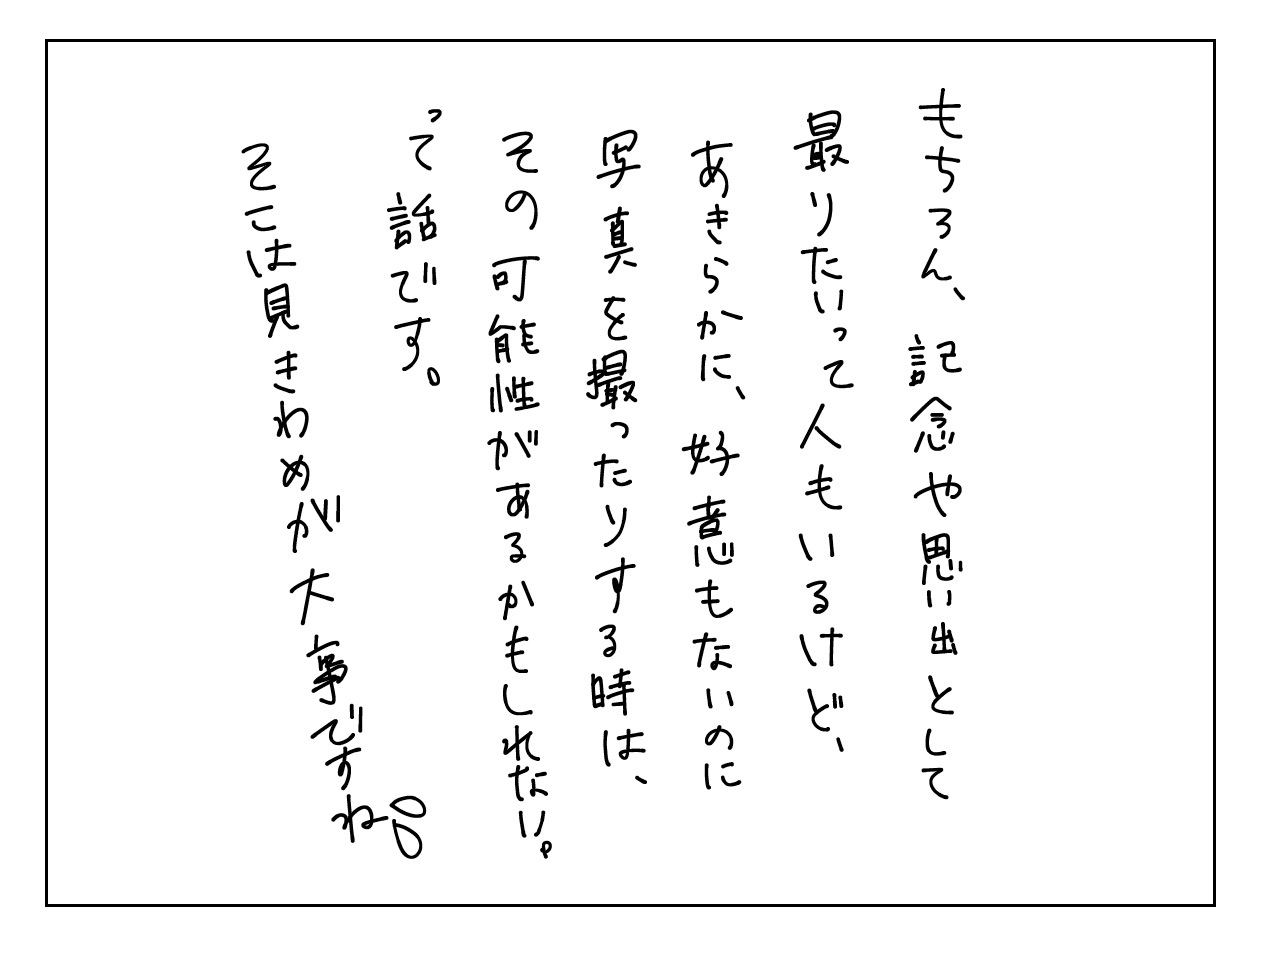 もちろん、記念や思い出として
最りたいって人もいるけど、
あきらかに、好意もないのに
写真を撮ったりする時は、
その可能性があるかもしれない。
って話です。
そこは見きわめが大事ですね